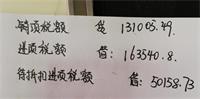 销项税额 贷 131005.49.
进项税额 借: 163540.8.
待抵扣进项税额 借: 50158.73